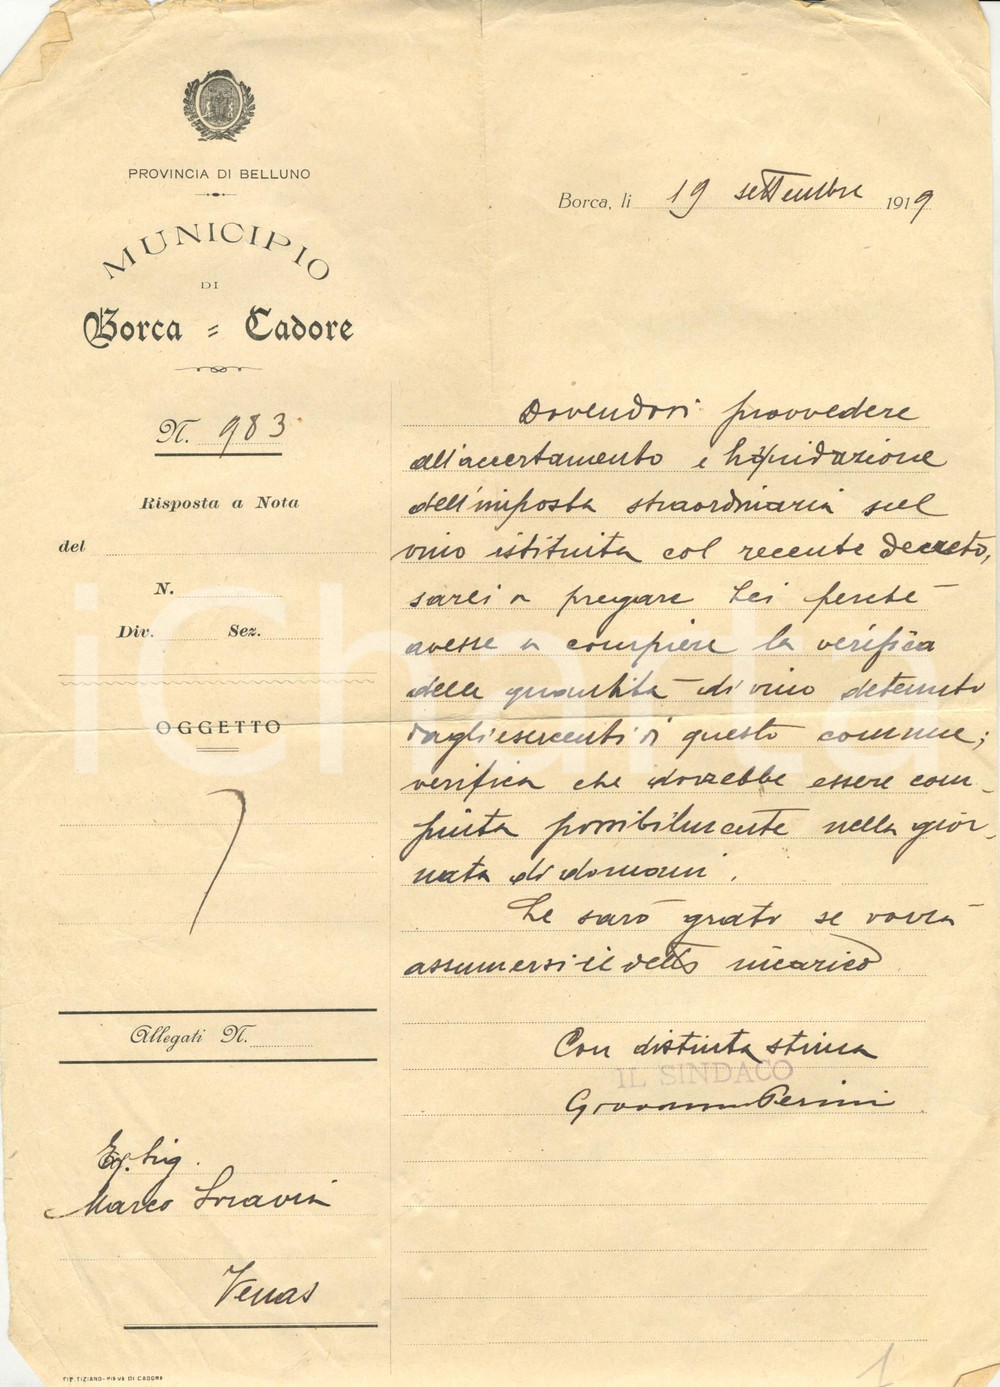 PROVINCIA DI BELLUNO
MUNICIPIO
DI
Borca = Cadore
Borca, li 19 settembre 1919
N. 983
Risposta a Nota
del
N.
Div. Sez.
OGGETTO
Dovendosi provvedere
all'accertamento e liquidazione
dell'imposta straordinaria sul
vino istituita col recente decreto,
sarei a pregare Lei perché
avesse a compiere la verifica
della quantità di vino detenuto
dagli esercenti di questo comune;
verifica che dovrebbe essere com-
piuta possibilmente nella gior-
nata di domani.
Le sarò grato se vorrà
assumersi il detto incarico
Con distinta stima
IL SINDACO
Giovanni Perini
Allegati N.
Eg. Sig.
Marco Soravia
Venas
TIP. TIZIANO-PIEVE DI CADORE
1
iCharta